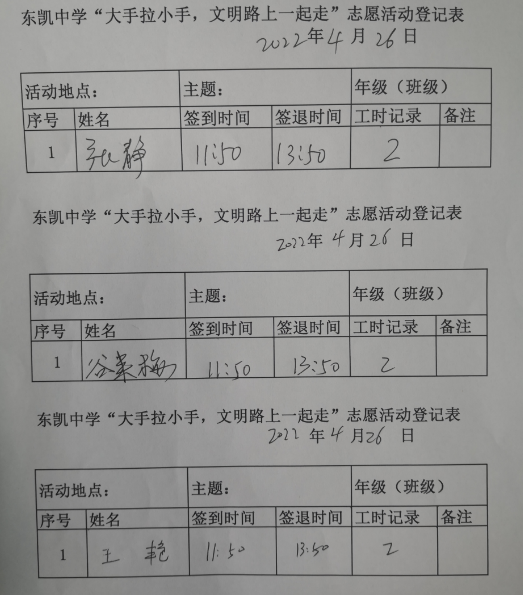 东凯中学“大手拉小手，文明路上一起走”志愿活动登记表
2022年4月26日
活动地点： 主题： 年级（班级）
序号 姓名 签到时间 签退时间 工时记录 备注
1 张静 11:50 13:50 2
东凯中学“大手拉小手，文明路上一起走”志愿活动登记表
2022年4月26日
活动地点： 主题： 年级（班级）
序号 姓名 签到时间 签退时间 工时记录 备注
1 谷 梅 11:50 13:50 2
东凯中学“大手拉小手，文明路上一起走”志愿活动登记表
2022年4月26日
活动地点： 主题： 年级（班级）
序号 姓名 签到时间 签退时间 工时记录 备注
1 王艳 11:50 13:50 2